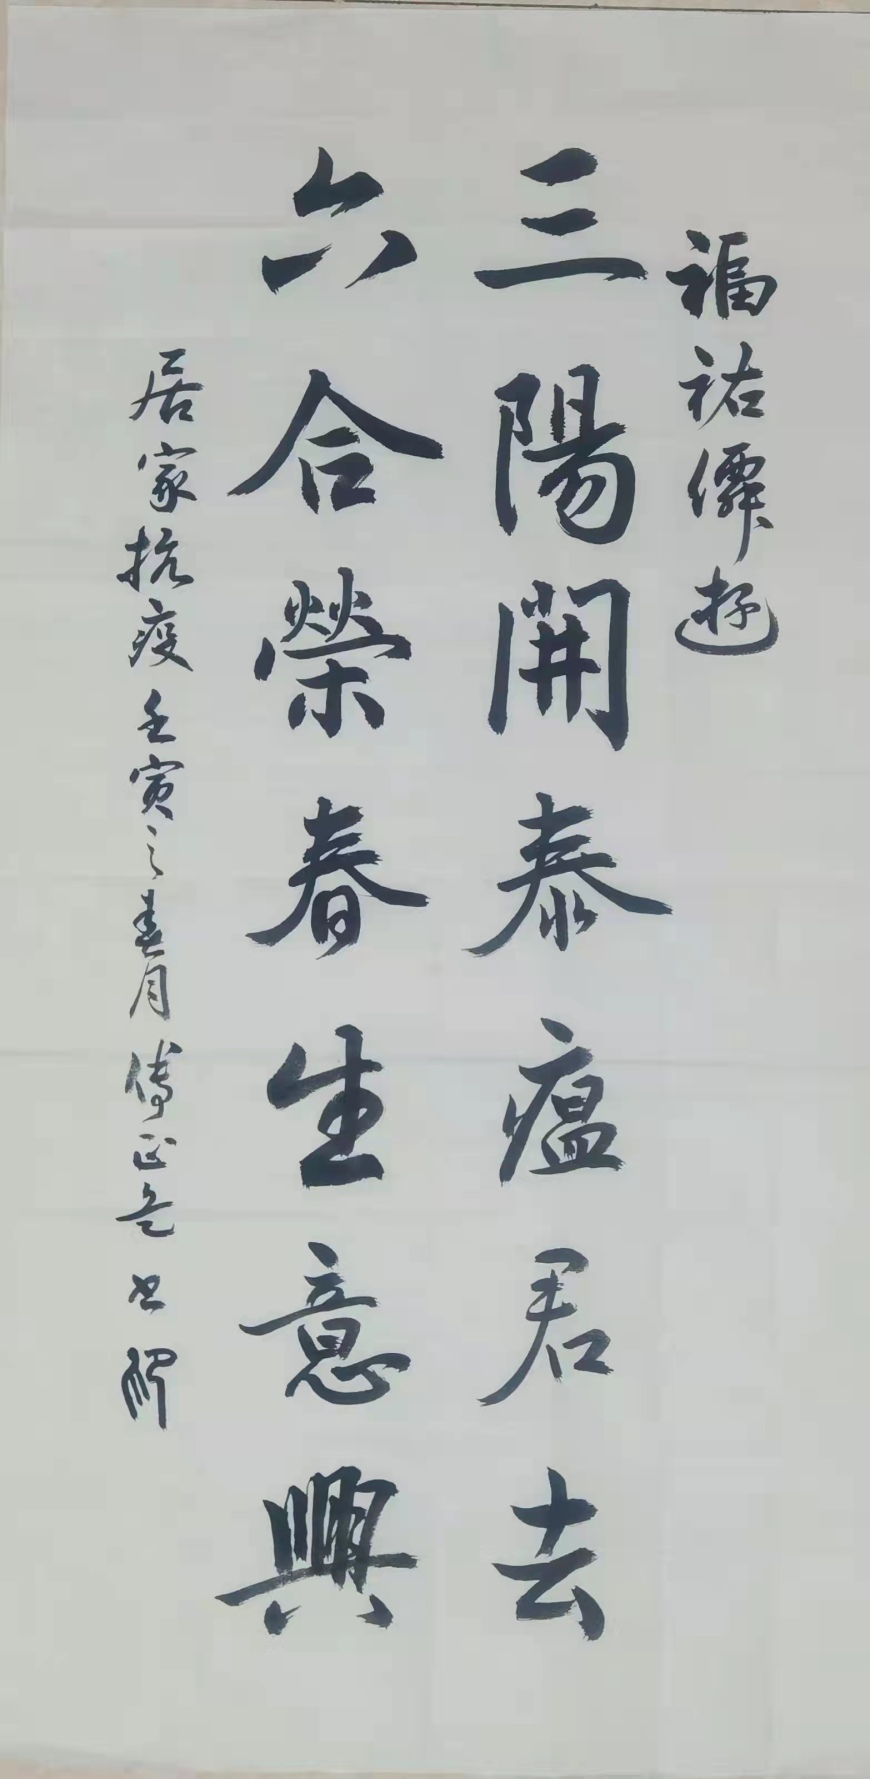 福祐僊遊
三陽開泰瘟君去
六合榮春生意興
居家抗疫壬寅之春月傅正 書